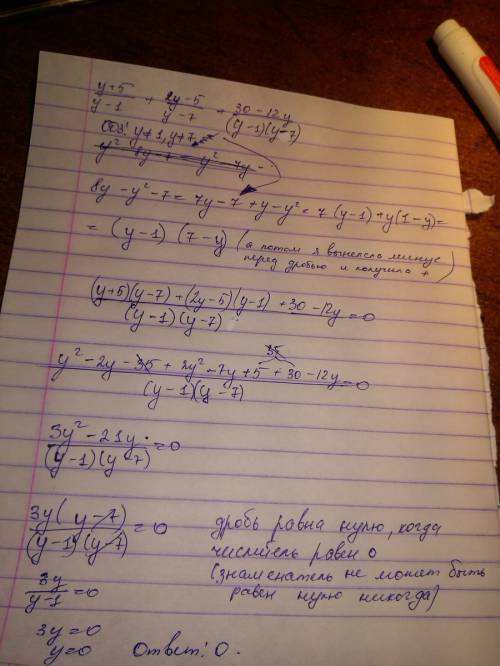 (y+5)/(y-1) + (2y-5)/(y-7) + (30-12y)/((y-1)(y-7))
ОДЗ: y≠1, y≠7
y² - 8y + 7 = y² - 7y -
8y - y² - 7 = 7y - 7 + y - y² = 7(y-1) + y(1-y) =
= (y-1)(7-y) (а потом я вынесла минус
перед дробью и получила +)
((y+5)(y-7) + (2y-5)(y-1) + 30 - 12y)/((y-1)(y-7)) = 0
35
(y² - 2y - 35 + 2y² - 7y + 5 + 30 - 12y)/((y-1)(y-7)) = 0
(3y² - 21y)/((y-1)(y-7)) = 0
3y(y-7)/((y-1)(y-7)) = 0
дробь равна нулю, когда
числитель равен 0
(знаменатель не может быть
равен нулю никогда)
3y/(y-1) = 0
3y = 0
y = 0
Ответ: 0.